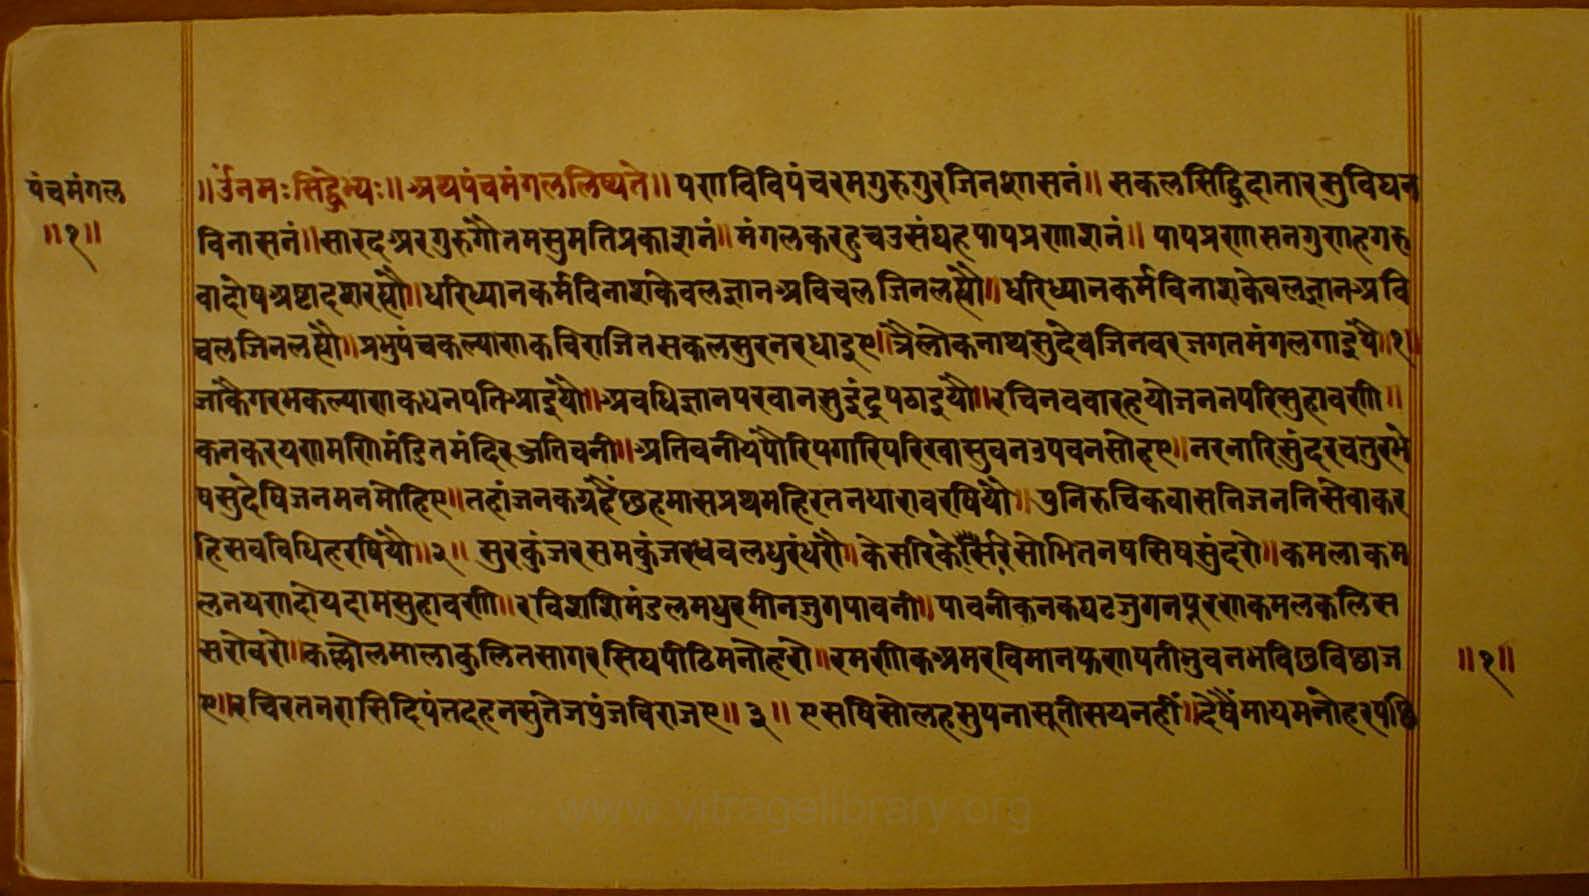 पंचमंगल
॥१॥
॥ॐनमःसिद्धेभ्यः॥अथपंचमंगललिष्यते॥ पणविविपंचरमगुरुगुरजिनशासनं॥ सकलसिद्धिदातारसुविघन
विनासनं॥सारदअरगुरुगौतमसुमतिप्रकाशनं॥मंगलकरहुचउसंघहपापप्रणाशनं॥ पापप्रणासनगुणहगरु
वादोषअष्टादशरह्यौ॥धरिध्यानकर्मविनाशकेवलज्ञानअविचलजिनलह्यौ॥धरिध्यानकर्मविनाशकेवलज्ञानअवि
चलजिनलह्यौ॥प्रभुपंचकल्याणकविराजितसकलसुरनरध्यादुए॥त्रैलोकनाथसुदेवजिनवरजगतमंगलगाइयै॥१॥
जाकैगरभकल्याणकधनपतिआइयौ॥अवधिज्ञानपरवानसुइंद्रपठाइयौ॥रचिनववारहयोजननपरिसुहावणी॥
कनकरयणमणिमंडितमंदिरअतिवनी॥अतिवनीयपौरिपगारिपरिखासुवनउपवनसोहए॥नरनारिसुंदरचतुरभे
षसुदेषिजनमनमोहिए॥तहांजनकग्रहैंछहमासप्रथमहिरतनधारावरषियौ॥पुनिरुचिकवासनिजननिसेवाकर
हिसवविधिहरषियौ॥२॥ सुरकुंजरसमकुंजरधवलधुरंधरौ॥केसरिकेसरिसोभितनषसिषसुंदरो॥कमलाकम
लनयणदोयदामसुहावणी॥रविशशिमंडलमधुरमीनजुगपावनी॥पावनीकनकघटजुगनपूरणकमलकलिस
सरोवरो॥कल्लोलमालाकुलितसागरसिंघपीठिमनोहरो॥रमणीकअमरविमानफणपतीभुवनभविछविछाज
ए॥रचिरतनरासिदिपंतदहनसुतेजपुंजविराजए॥३॥ एसषिसोलहसुपनासूतीसयनहीं॥देषैंमायमनोहरपछि
॥१॥
www.vitragelibrary.org